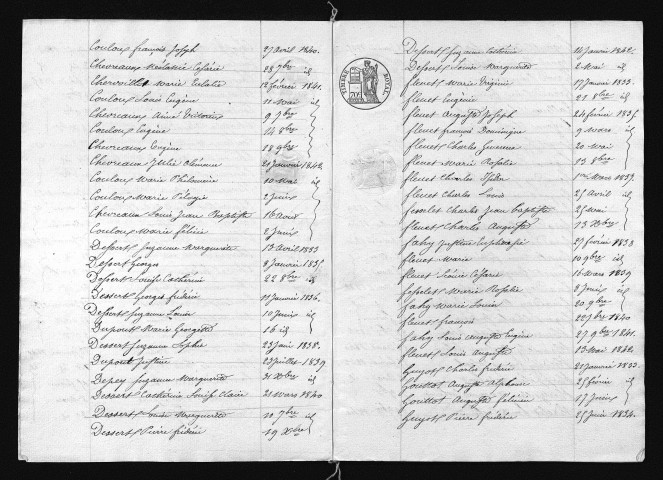 Couloux françois Joseph 27 avril 1840.
Chevreaux Natalie Césarie 28 7bre id
Marie 12 février 1841.
Couloux Louis Eugène 11 Mai id
Chevreaux Aimé Victorin 9 7bre
Couloux Eugène 14 8bre
Chevreaux Eugène 18 9bre
Chevreaux Julie Clémence 21 Janvier 1842
Couloux Marie Philomène 10 Mai id
Couloux Marie Pélagie 2 Juin
Chevreaux Louis Jean Baptiste 16 aout
Couloux Marie félicie 2 Juin
Dessert Suzanne Marguerite 13 avril 1833
Dessert Georges 8 Janvier 1835
Dessert Louise Cathérine 22 8bre id
Dessert Georges fréderic 11 Janvier 1836.
Dessert Suzanne Louise 10 Juin id
Dupont Marie Georgette 16 id
Dessert Suzanne Sophie 23 Juin 1838.
Dupont Justine 23 Juillet 1839
Depey Suzanne Marguerite 31 Xbre id
Dessert Cathérine Louise Claire 21 Mars 1840
Dessert Louise Marguerite 10 7bre id
Dessert Pierre fréderic 19 Xbre
TIMBRE ROYAL
Dessert Suzanne Cathérine 14 Janvier 1842.
Dessert Louise Marguerite 2 Mai id
fleuret Marie Virginie 17 Janvier 1833.
fleuret Eugénie 21 8bre id
fleuret Auguste Joseph 24 février 1835
fleuret françois Dominique 9 Mars id
fleuret Charles 20 Mai
fleuret Marie Rosalie 13 8bre
fleuret Charles Isidore 1er Mars 1837.
fleuret Charles Louis 25 avril id
fesselet Charles Jean Baptiste 25 Mai
fleuret Charles Auguste 13 Xbre
fahy Justine Euphrasie 27 février 1838
fleuret Marie 10 9bre id
fleuret César 16 Mars 1839
fesselet Marie Rosalie 8 Juin id
fahy Marie Louise 20 9bre
fleuret françois 22 7bre 1840
fahy Louis Auguste Eugène 27 9bre 1841.
fleuret Louis Auguste 13 Mai 1842.
Guyot Charles fréderic 21 Janvier 1833.
Gouttot Auguste Alphonse 25 février id
Gouttot Auguste félicien 17 Juin
Guyot Pierre fréderic 25 Juin 1834.